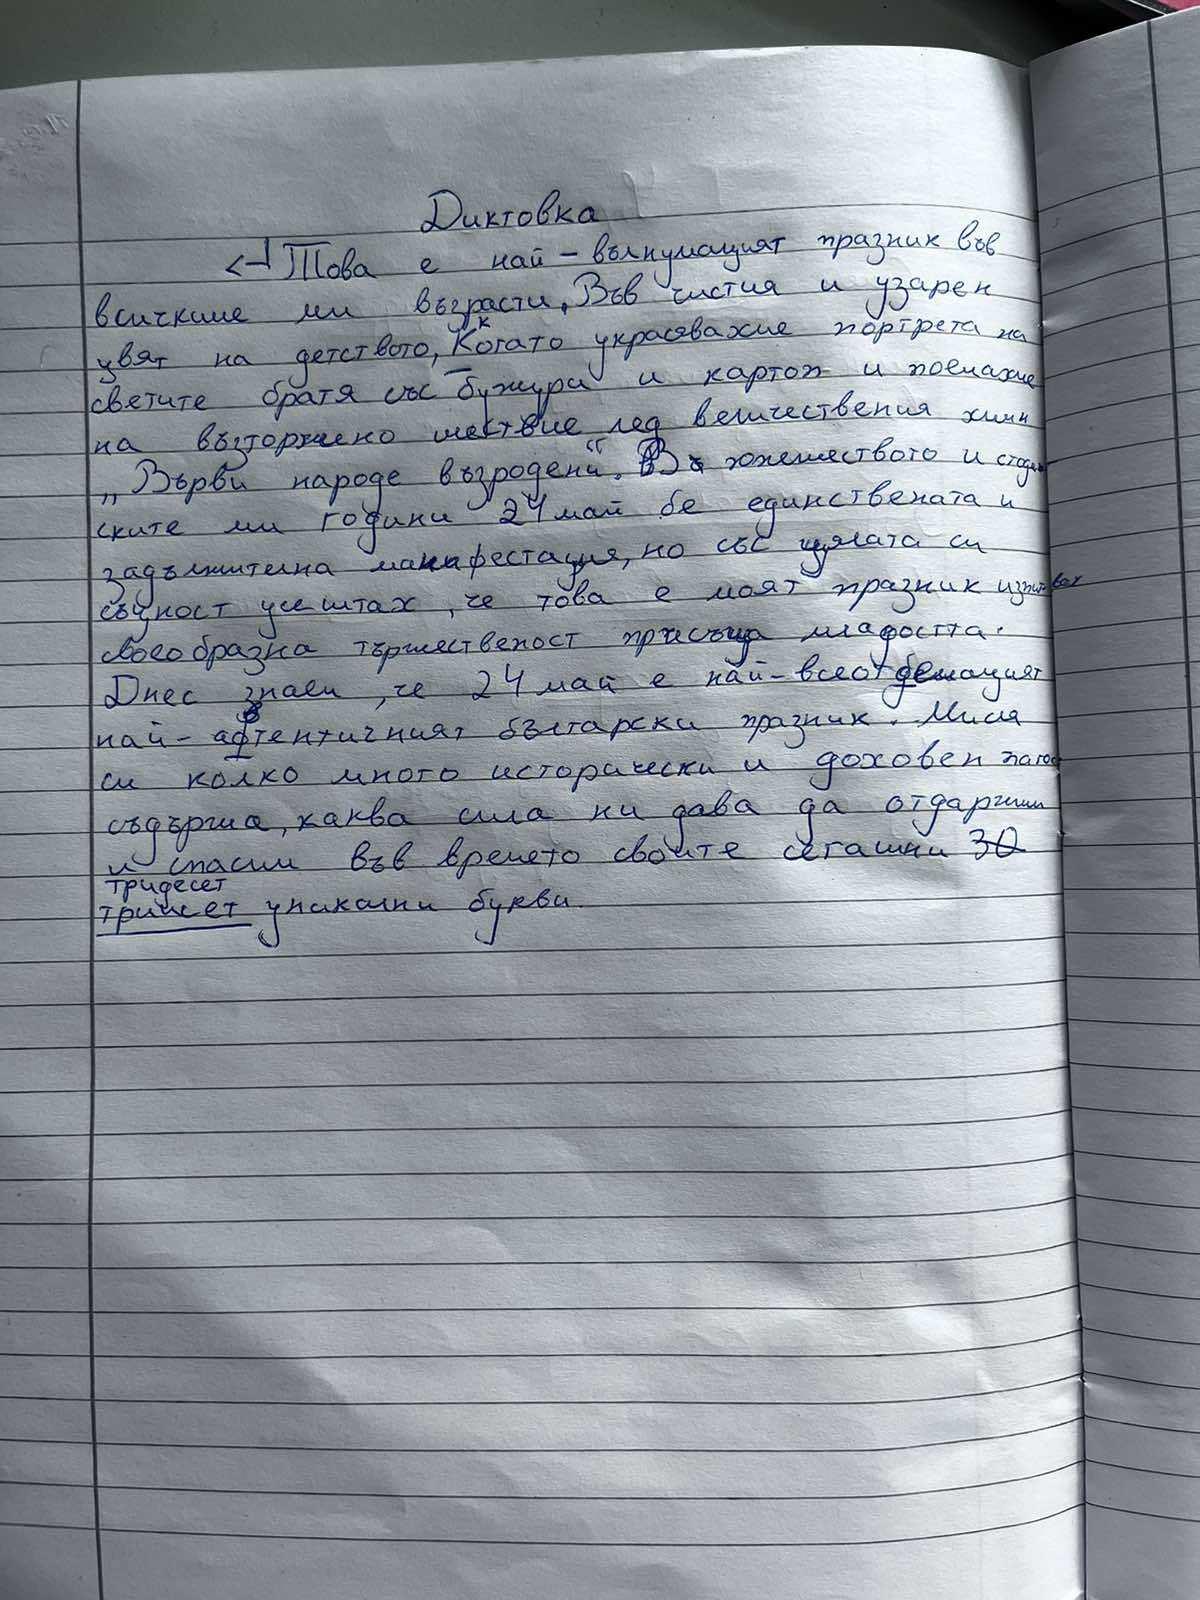 Диктовка
Това е най-вълнуващият празник във
всичките ми възрасти. Във чистия и узарен
цвят на детството, Когато украсявахме портрета на
светите братя със божури и картон и поемахме
на възторжено шествие под величествения химн
„Върви народе възродени". В юношеството и студент
ските ми години 24 май бе единствената и
задължителна манифестация, но със цялата си
същност усештах, че това е моят празник изпитвах
своеобразна тържественост присъща младостта.
Днес знаем, че 24 май е най-всеотдаващият
най-автентичният български празник. Мисля
си колко много исторически и духовен патос
съдържа, каква сила ни дава да отдаржим
и спасим във времето своите сегашни 30
тридесет
трийсет уникални букви.